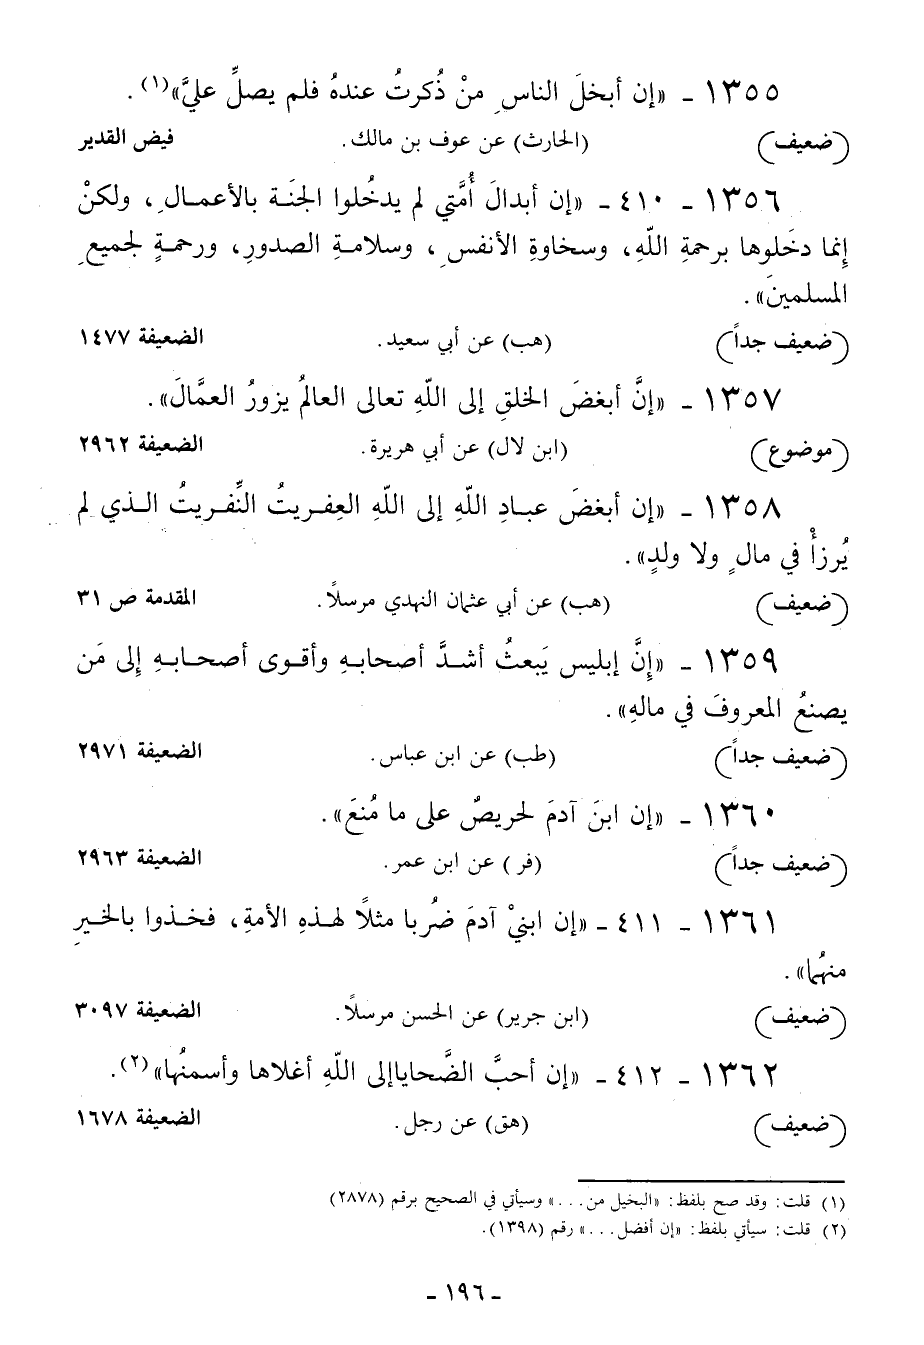 ١٣٥٥ - «إن أبخلَ الناسِ منْ ذُكرتُ عندهُ فلم يصلِّ عليَّ»(١).
(ضعيف) (الحارث) عن عوف بن مالك. فيض القدير
١٣٥٦ - ٤١٠ - «إن أبدالَ أُمَّتي لم يدخُلوا الجنَة بالأعمـالِ، ولكنْ
إنما دخَلوها برحمةِ اللّهِ، وسخاوةِ الأنفسِ، وسلامـةِ الصدورِ، ورحمـةٍ لجميعِ
المسلمينَ».
(ضعيف جداً) (هب) عن أبي سعيد. الضعيفة ١٤٧٧
١٣٥٧ - «إنَّ أبغضَ الخلقِ إلى اللّهِ تعالى العالمُ يزورُ العمَّالَ».
(موضوع) (ابن لال) عن أبي هريرة. الضعيفة ٢٩٦٢
١٣٥٨ - «إن أبغضَ عبـادِ اللّهِ إلى اللّهِ العِفـريتُ النِّفـريتُ الـذي لم
يُرزأْ في مالٍ ولا ولدٍ».
(ضعيف) (هب) عن أبي عثمان النهدي مرسلاً. المقدمة ص ٣١
١٣٥٩ - «إنَّ إبليس يَبعثُ أشـدَّ أصحابـهِ وأقـوى أصحـابـهِ إلى مَن
يصنعُ المعروفَ في مالهِ».
(ضعيف جداً) (طب) عن ابن عباس. الضعيفة ٢٩٧١
١٣٦٠ - «إن ابنَ آدمَ لحريصٌ على ما مُنعَ».
(ضعيف جداً) (فر) عن ابن عمر. الضعيفة ٢٩٦٣
١٣٦١ - ٤١١ - «إن ابنيْ آدمَ ضُربا مثلاً لهـذهِ الأمةِ، فخـذوا بالخـيرِ
منهُما».
(ضعيف) (ابن جرير) عن الحسن مرسلاً. الضعيفة ٣٠٩٧
١٣٦٢ - ٤١٢ - «إن أحبَّ الضَّحاياإلى اللّهِ أغلاها وأسمنُها»(٢).
(ضعيف) (هق) عن رجل. الضعيفة ١٦٧٨
(١) قلت: وقد صح بلفظ: «البخيل من...» وسيأتي في الصحيح برقم (٢٨٧٨)
(٢) قلت: سيأتي بلفظ: «إن أفضل...» رقم (١٣٩٨).
- ١٩٦ -